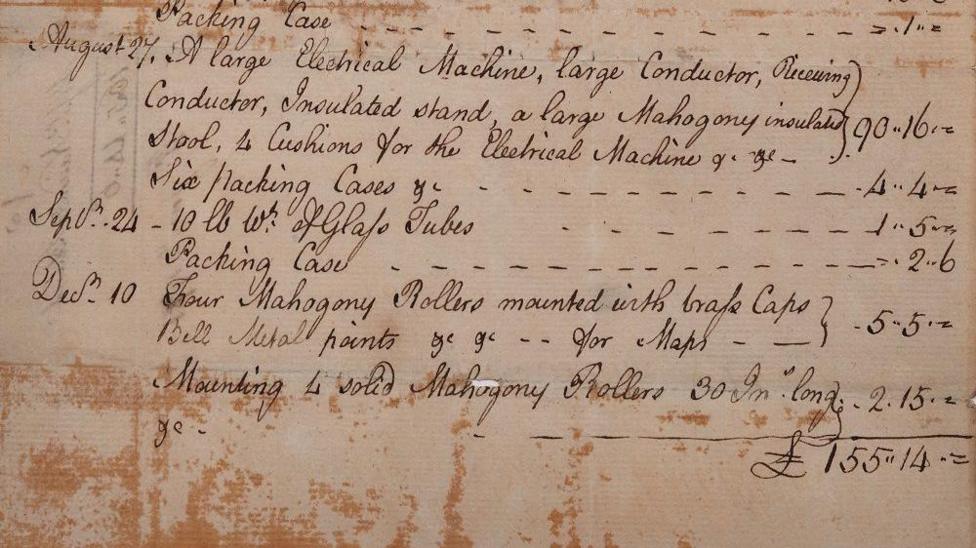 Packing Case - - - - - - - - - - = „ 1 „ =
August 27. A large Electrical Machine, large Conductor, Receiving
Conductor, Insulated stand, a large Mahogony insulated
Stool, 4 Cushions for the Electrical Machine &c &c - 90 „ 16 „ =
Six packing Cases &c - - - - - - - - - 4 „ 4 „ =
Sepbr. 24 - 10 lb Wt. of Glaſs Tubes - - - - - - 1 „ 5 „ =
Packing Case - - - - - - - - - - = „ 2 „ 6
Decbr. 10 Four Mahogony Rollers mounted with braſs Caps
Bell Metal points &c &c - - for Maps - - 5 „ 5 „ =
Mounting 4 solid Mahogony Rollers 30 Ins. long - 2 „ 15 „ =
&c -
£ 155 „ 14 „ =